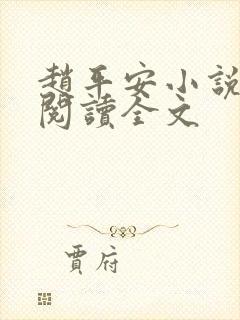 趙平安小說
閱讀全文
賈府